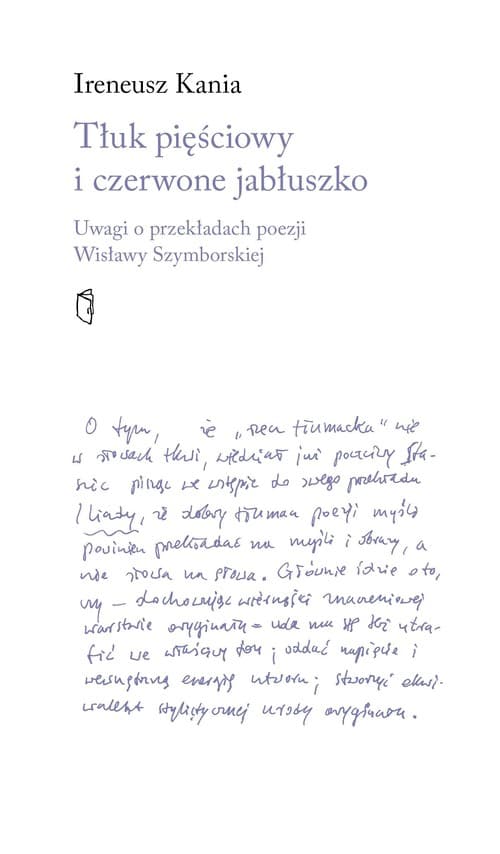 Ireneusz Kania
Tłuk pięściowy
i czerwone jabłuszko
Uwagi o przekładach poezji
Wisławy Szymborskiej
O tym, że „rzecz tłumacka" nie
w słowach tkwi, wiedział już poczciwy Sta-
nic pisząc we wstępie do swego przekładu
Iliady, iż dobry tłumacz poezji myśli
powinien przekładać na myśli i obrazy, a
nie słowa na słowa. Głównie idzie o to,
czy – dochowując wierności znaczeniowej
warstwie oryginału – uda mu się też utra-
fić we właściwy ton; oddać napięcie i
wewnętrzną energię utworu; stworzyć ekwi-
walent stylistycznej urody oryginału.